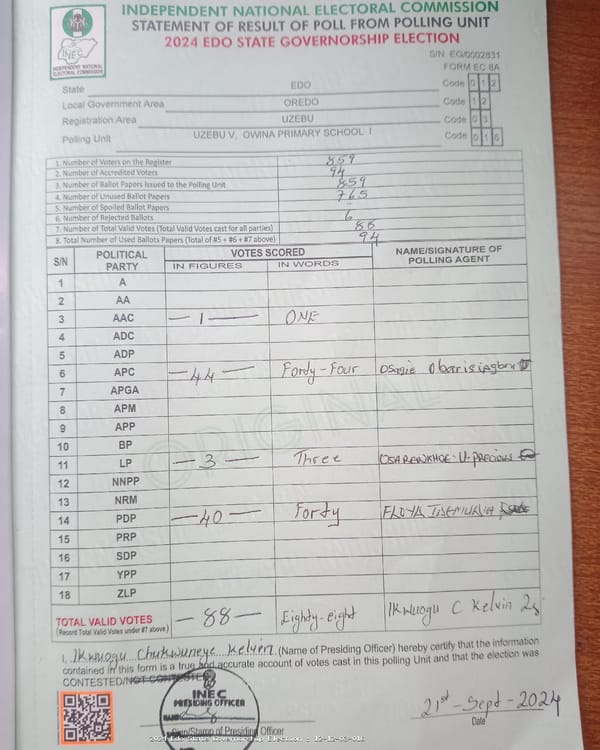 INDEPENDENT NATIONAL ELECTORAL COMMISSION
STATEMENT OF RESULT OF POLL FROM POLLING UNIT
2024 EDO STATE GOVERNORSHIP ELECTION
INEC
INDEPENDENT NATIONAL
ELECTORAL COMMISSION
S/N: EG/0002831
FORM EC 8A
State EDO Code 0 1 2
Local Government Area OREDO Code 1 2
Registration Area UZEBU Code 0 3
Polling Unit UZEBU V, OWINA PRIMARY SCHOOL I Code 0 1 6
1. Number of Voters on the Register 859
2. Number of Accredited Voters 94
3. Number of Ballot Papers Issued to the Polling Unit 859
4. Number of Unused Ballot Papers 765
5. Number of Spoiled Ballot Papers -
6. Number of Rejected Ballots 6
7. Number of Total Valid Votes (Total Valid Votes cast for all parties) 88
8. Total Number of Used Ballots Papers (Total of #5 + #6 + #7 above) 94
S/N POLITICAL PARTY VOTES SCORED NAME/SIGNATURE OF POLLING AGENT
IN FIGURES IN WORDS
1 A
2 AA
3 AAC — 1 — ONE
4 ADC
5 ADP
6 APC — 44 — Fordy-four Osazie
7 APGA
8 APM
9 APP
10 BP
11 LP — 3 — Three OSARENKHOE. U. PRECIOUS
12 NNPP
13 NRM
14 PDP — 40 — Fordy
15 PRP
16 SDP
17 YPP
18 ZLP
TOTAL VALID VOTES — 88 — Eighty-eight Ikwuogu C Kelvin
(Record Total Valid Votes under #7 above)
ORIGINAL
I, Ikwuogu Chukwuneye Kelvin (Name of Presiding Officer) hereby certify that the information
contained in this form is a true and accurate account of votes cast in this polling Unit and that the election was
CONTESTED/NOT CONTESTED
INEC
PRESIDING OFFICER
21st - Sept - 2024
Sign/Stamp of Presiding Officer Date